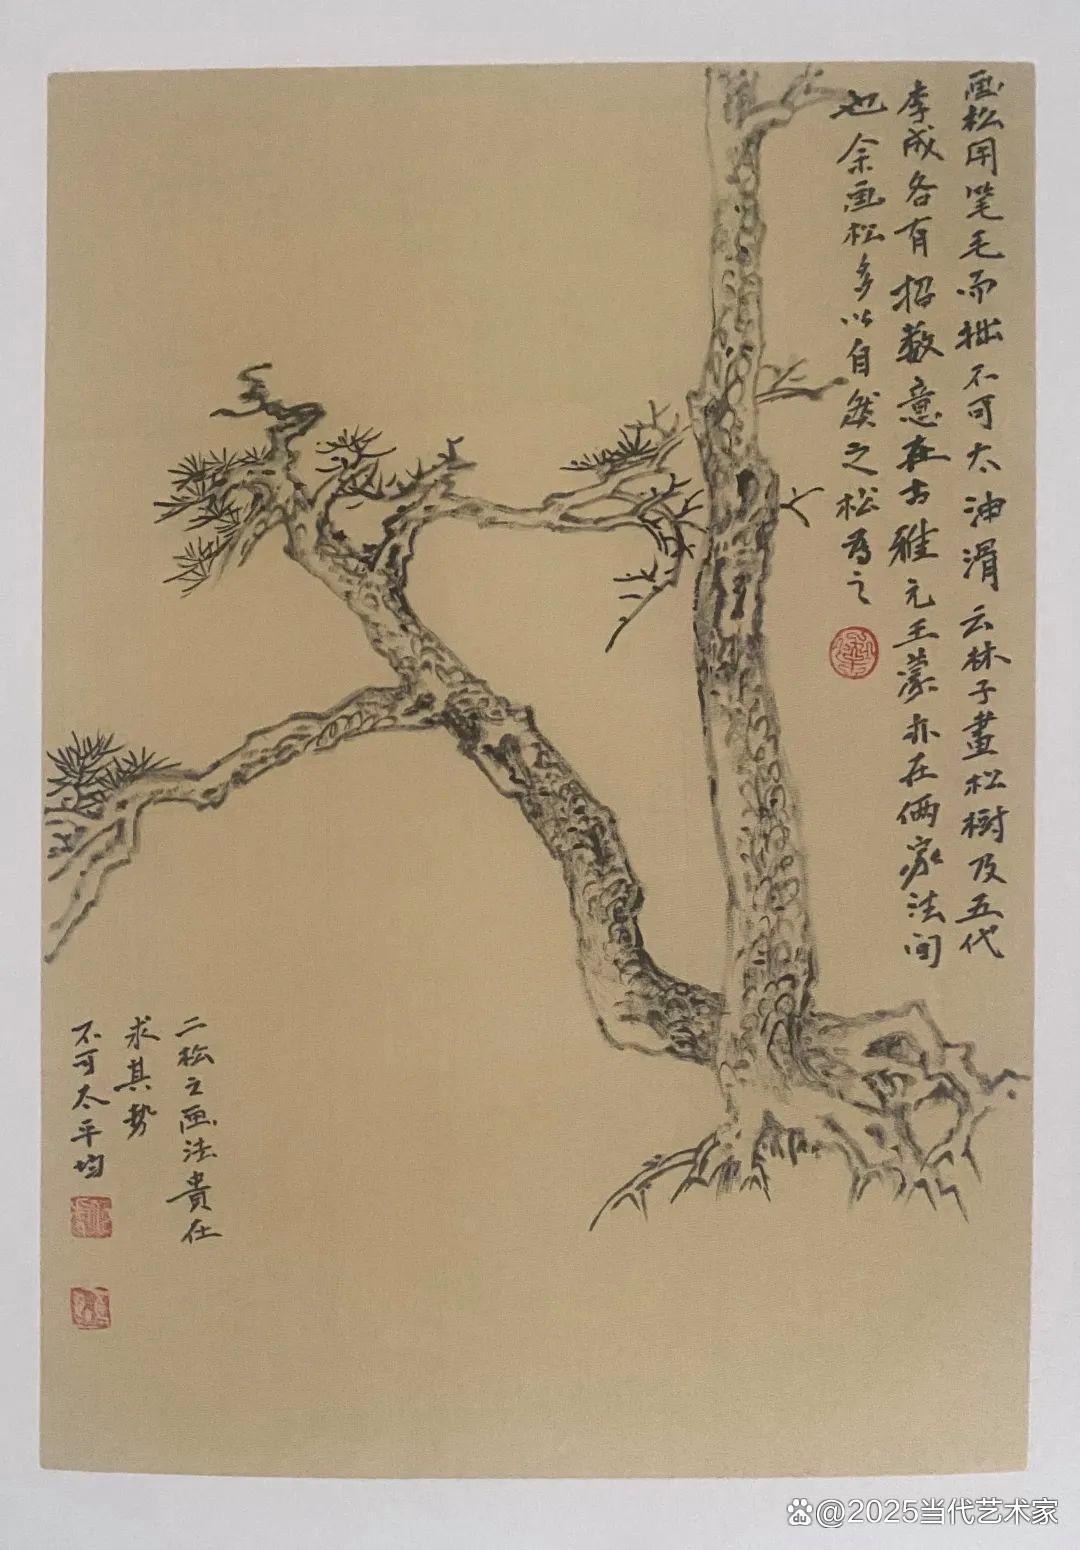 画松用笔毛而拙不可太油滑云林子畫松树及五代
李成各有招数意在古雅元王蒙亦在俩家法间
也余画松多以自然之松为之
二松之画法贵在
求其势
不可太平均
@2025当代艺术家